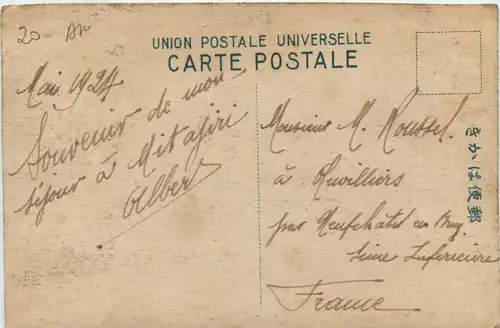 20- An
UNION POSTALE UNIVERSELLE
CARTE POSTALE
Mai 1924
Souvenir de mon
séjour à Mitajiri
Albert
Monsieur M. Roussel
à Quvilliers
par Neufchâtel en Bray
Seine Inférieure
France
きかは便郵